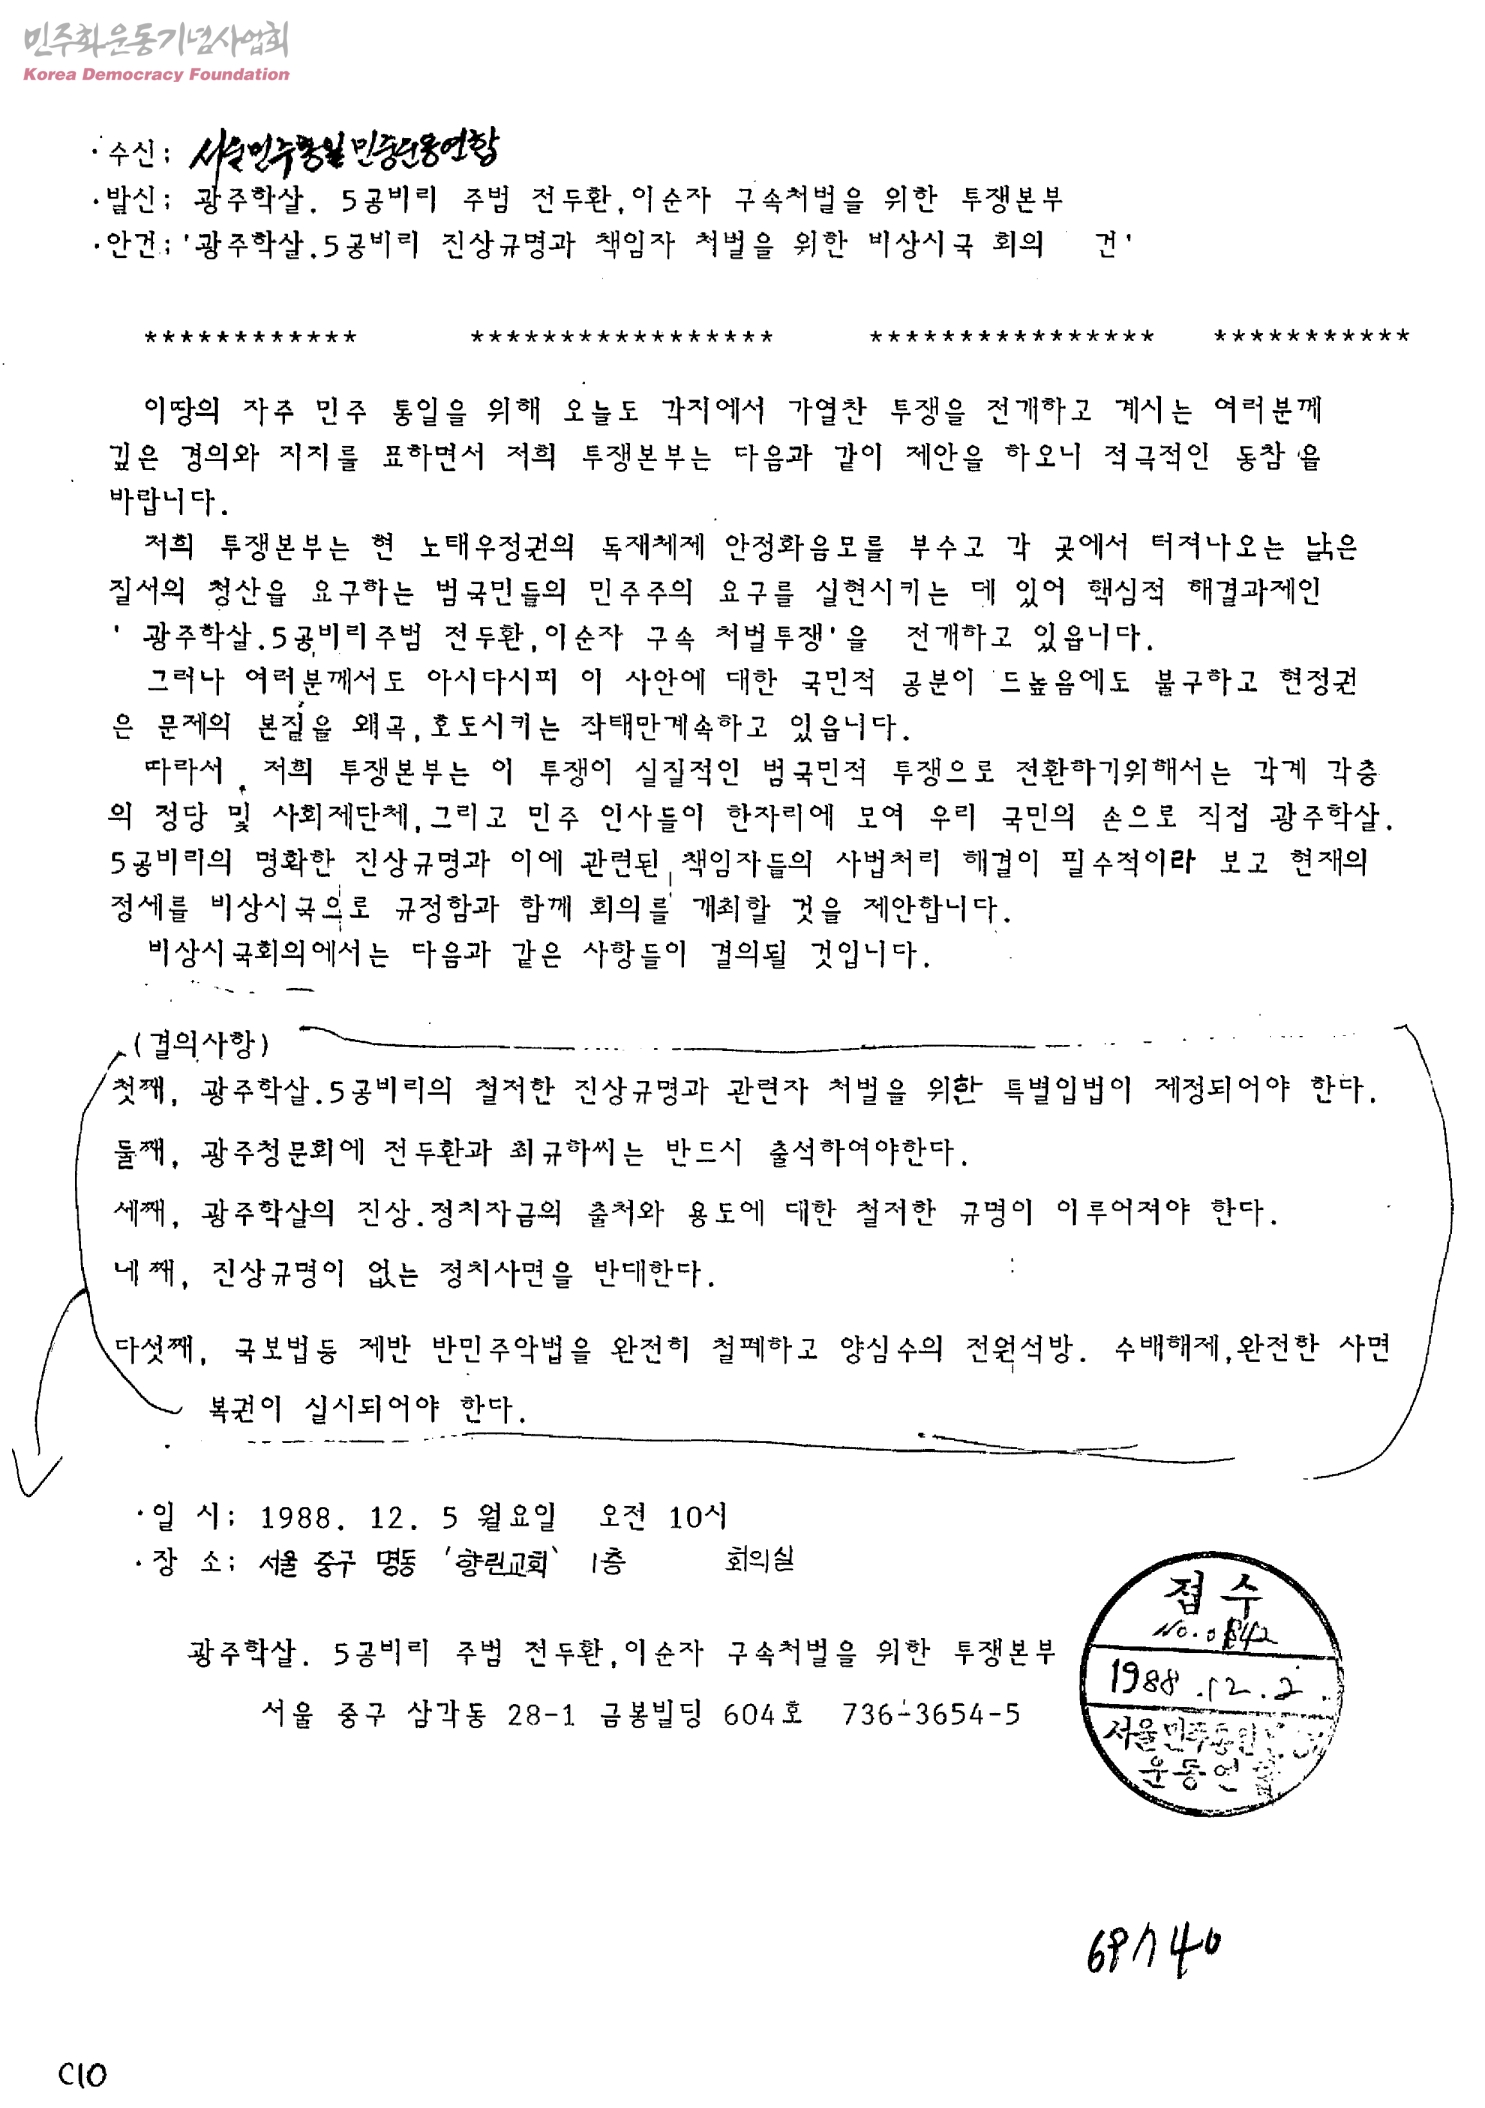 민주화운동기념사업회
Korea Democracy Foundation
·수신; 서울민주통일민중운동연합
·발신; 광주학살. 5공비리 주범 전두환,이순자 구속처벌을 위한 투쟁본부
·안건;'광주학살.5공비리 진상규명과 책임자 처벌을 위한 비상시국 회의 건'
************ ***************** **************** ***********
이땅의 자주 민주 통일을 위해 오늘도 각지에서 가열찬 투쟁을 전개하고 계시는 여러분께
깊은 경의와 지지를 표하면서 저희 투쟁본부는 다음과 같이 제안을 하오니 적극적인 동참을
바랍니다.
저희 투쟁본부는 현 노태우정권의 독재체제 안정화음모를 부수고 각 곳에서 터져나오는 낡은
질서의 청산을 요구하는 범국민들의 민주주의 요구를 실현시키는 데 있어 핵심적 해결과제인
' 광주학살.5공비리주범 전두환,이순자 구속 처벌투쟁'을 전개하고 있읍니다.
그러나 여러분께서도 아시다시피 이 사안에 대한 국민적 공분이 드높음에도 불구하고 현정권
은 문제의 본질을 왜곡,호도시키는 작태만계속하고 있읍니다.
따라서, 저희 투쟁본부는 이 투쟁이 실질적인 범국민적 투쟁으로 전환하기위해서는 각계 각층
의 정당 및 사회제단체,그리고 민주 인사들이 한자리에 모여 우리 국민의 손으로 직접 광주학살.
5공비리의 명확한 진상규명과 이에 관련된 책임자들의 사법처리 해결이 필수적이라 보고 현재의
정세를 비상시국으로 규정함과 함께 회의를 개최할 것을 제안합니다.
비상시국회의에서는 다음과 같은 사항들이 결의될 것입니다.
(결의사항)
첫째, 광주학살.5공비리의 철저한 진상규명과 관련자 처벌을 위한 특별입법이 제정되어야 한다.
둘째, 광주청문회에 전두환과 최규하씨는 반드시 출석하여야한다.
세째, 광주학살의 진상.정치자금의 출처와 용도에 대한 철저한 규명이 이루어져야 한다.
네째, 진상규명이 없는 정치사면을 반대한다.
다섯째, 국보법등 제반 반민주악법을 완전히 철폐하고 양심수의 전원석방. 수배해제,완전한 사면
복권이 실시되어야 한다.
·일 시; 1988. 12. 5 월요일 오전 10시
·장 소; 서울 중구 명동 '향린교회' 1층 회의실
광주학살. 5공비리 주범 전두환,이순자 구속처벌을 위한 투쟁본부
서울 중구 삼각동 28-1 금봉빌딩 604호 736-3654-5
접수
1988.12.2.
서울민주통일
운동연합
C10